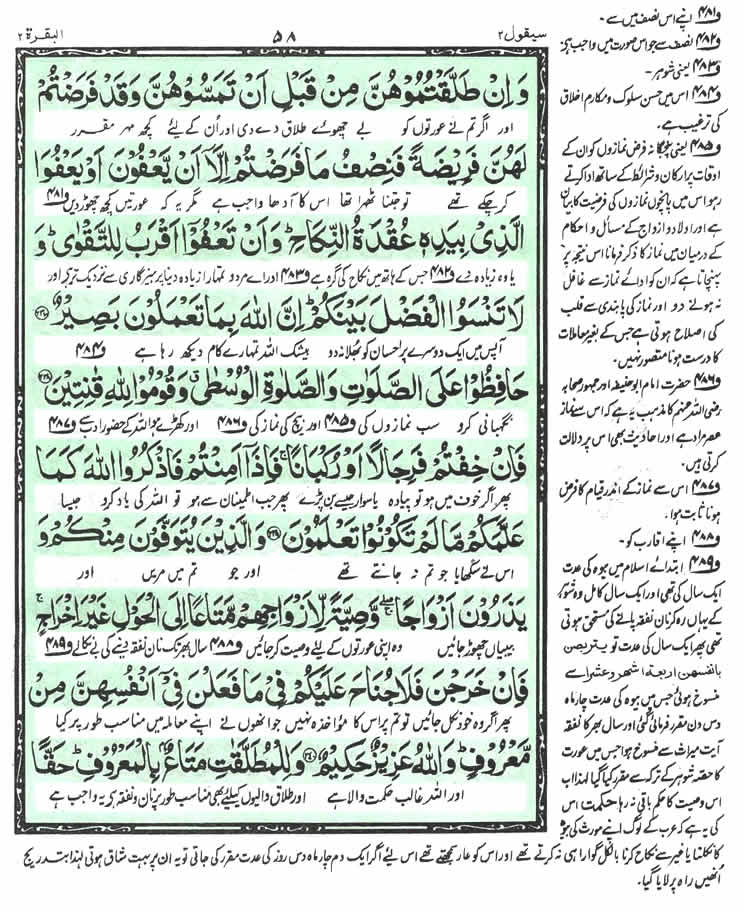 سیقول۲
۵۸
البقرۃ ۲
وَاِنْ طَلَّقْتُمُوْهُنَّ مِنْ قَبْلِ اَنْ تَمَسُّوْهُنَّ وَقَدْ فَرَضْتُمْ
اور اگر تم نے عورتوں کو بے چھوئے طلاق دے دی اور اُن کے لئے کچھ مہر مقرر
لَهُنَّ فَرِيْضَةً فَنِصْفُ مَا فَرَضْتُمْ اِلَّاۤ اَنْ يَّعْفُوْنَ اَوْ يَعْفُوَا
کرچکے تھے تو جتنا ٹھہرا تھا اس کا آدھا واجب ہے مگر یہ کہ عورتیں کچھ چھوڑ دیں و۴۸۱
الَّذِيْ بِيَدِهٖ عُقْدَةُ النِّكَاحِ ؕ وَاَنْ تَعْفُوْۤا اَقْرَبُ لِلتَّقْوٰى ؕ وَ
یا وہ زیادہ دے و۴۸۲ جس کے ہاتھ میں نکاح کی گرہ ہے و۴۸۳ اور اے مردو تمہارا زیادہ دینا پرہیزگاری سے نزدیک تر ہے اور
لَا تَنْسَوُا الْفَضْلَ بَيْنَكُمْ ؕ اِنَّ اللّٰهَ بِمَا تَعْمَلُوْنَ بَصِيْرٌ ﴿۲۳۷﴾
آپس میں ایک دوسرے پر احسان کو بھلا نہ دو بیشک اللہ تمہارے کام دیکھ رہا ہے و۴۸۴
حَافِظُوْا عَلَى الصَّلَوٰتِ وَالصَّلٰوةِ الْوُسْطٰى ۗ وَقُوْمُوْا لِلّٰهِ قٰنِتِيْنَ ﴿۲۳۸﴾
نگہبانی کرو سب نمازوں کی و۴۸۵ اور بیچ کی نماز کی و۴۸۶ اور کھڑے ہو اللہ کے حضور ادب سے و۴۸۷
فَاِنْ خِفْتُمْ فَرِجَالًا اَوْ رُكْبَانًا ۚ فَاِذَاۤ اَمِنْتُمْ فَاذْكُرُوا اللّٰهَ كَمَا
پھر اگر خوف میں ہو تو پیادہ یا سوار جیسے بن پڑے پھر جب اطمینان سے ہو تو اللہ کی یاد کرو جیسا
عَلَّمَكُمْ مَّا لَمْ تَكُوْنُوْا تَعْلَمُوْنَ ﴿۲۳۹﴾ وَالَّذِيْنَ يُتَوَفَّوْنَ مِنْكُمْ وَ
اس نے سکھایا جو تم نہ جانتے تھے اور جو تم میں مریں اور
يَذَرُوْنَ اَزْوَاجًا ۖۚ وَّصِيَّةً لِّاَزْوَاجِهِمْ مَّتَاعًا اِلَى الْحَوْلِ غَيْرَ اِخْرَاجٍ ۚ
بیبیاں چھوڑ جائیں وہ اپنی عورتوں کے لئے وصیت کر جائیں و۴۸۸ سال بھر تک نان نفقہ دینے کی بے نکالے و۴۸۹
فَاِنْ خَرَجْنَ فَلَا جُنَاحَ عَلَيْكُمْ فِيْ مَا فَعَلْنَ فِيْۤ اَنْفُسِهِنَّ مِنْ
پھر اگر وہ خود نکل جائیں تو تم پر اس کا مؤاخذہ نہیں جو انھوں نے اپنے معاملہ میں مناسب طور پر کیا
مَّعْرُوْفٍ ؕ وَاللّٰهُ عَزِيْزٌ حَكِيْمٌ ﴿۲۴۰﴾ وَلِلْمُطَلَّقٰتِ مَتَاعٌۢ بِالْمَعْرُوْفِ ؕ حَقًّا
اور اللہ غالب حکمت والا ہے اور طلاق والیوں کیلئے بھی مناسب طور پر نان و نفقہ ہے یہ واجب ہے
و۴۸۱ اپنے اس نصف میں سے۔
و۴۸۲ نصف سے جو اس صورت میں واجب ہے
و۴۸۳ یعنی شوہر۔
و۴۸۴ اس میں حسن سلوک و مکارم اخلاق
کی ترغیب ہے۔
و۴۸۵ یعنی پنجگانہ فرض نمازوں کو ان کے
اوقات پر ارکان و شرائط کے ساتھ ادا کرتے
رہو اس میں پانچوں نمازوں کی فرضیت کا بیان
ہے اور اولاد و ازواج کے مسائل و احکام
کے درمیان میں نماز کا ذکر فرمانا اس نتیجہ پر
پہنچاتا ہے کہ ان کو ادائے نماز سے غافل
نہ ہونے دو اور نماز کی پابندی سے قلب
کی اصلاح ہوتی ہے جس کے بغیر معاملات
کا درست ہونا متصور نہیں۔
و۴۸۶ حضرت امام ابوحنیفہ اور جمہور صحابہ
رضی اللہ عنہم کا مذہب یہ ہے کہ اس سے نماز
عصر مراد ہے اور احادیث بھی اس پر دلالت
کرتی ہیں۔
و۴۸۷ اس سے نماز کے اندر قیام کا فرض
ہونا ثابت ہوا۔
و۴۸۸ اپنے اقارب کو۔
و۴۸۹ ابتدائے اسلام میں بیوہ کی عدت
ایک سال کی تھی اور ایک سال کامل وہ شوہر
کے یہاں رہ کر نان و نفقہ پانے کی مستحق ہوتی
تھی پھر ایک سال کی عدت تو یتربصن
بانفسھن اربعۃ اشھر وعشرا سے
منسوخ ہوئی جس میں بیوہ کی عدت چار ماہ
دس دن مقرر فرمائی گئی اور سال بھر کا نفقہ
آیت میراث سے منسوخ ہوا جس میں عورت
کا حصہ شوہر کے ترکہ سے مقرر کیا گیا لہذا اب
اس وصیت کا حکم باقی نہ رہا حکمت اس
کی یہ ہے کہ عرب کے لوگ اپنے مورث کی بیوہ
کا نکلنا یا غیر سے نکاح کرنا بالکل گوارا ہی نہ کرتے تھے اور اس کو عار سمجھتے تھے اس لئے اگر ایک دم چار ماہ دس روز کی عدت مقرر کی جاتی تو یہ ان پر بہت شاق ہوتی لہذا بتدریج
انھیں راہ پر لایا گیا۔